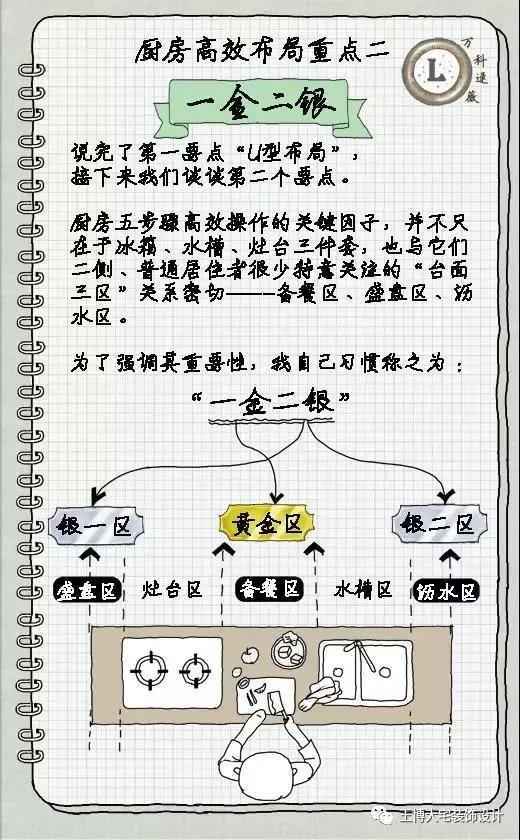 厨房高效布局重点二
L
万科速派
一金二银
说完了第一要点“U型布局”，
接下来我们谈谈第二个要点。
厨房五步骤高效操作的关键因子，并不只
在于冰箱、水槽、灶台三件套，也与它们
二侧、普通居住者很少特意关注的“台面
三区”关系密切——备餐区、盛盘区、沥
水区。
为了强调其重要性，我自己习惯称之为：
“一金二银”
银一区 黄金区 银二区
盛盘区 灶台区 备餐区 水槽区 沥水区
土博大宅装饰设计